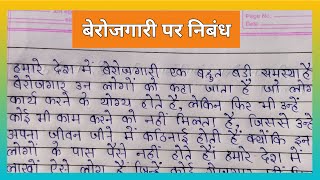 बेरोजगारी पर निबंध
Page No.:
हमारे देश में बेरोजगारी एक बहुत बड़ी समस्या है
बेरोजगार उन लोगों को कहा जाता है जो लोग
कार्य करने के योग्य होते है, लेकिन फिर भी उन्हें
कोई भी काम करने को नहीं मिलता है, जिससे उन्हें
अपना जीवन जीने में कठिनाई होती है क्योंकि इन
लोगों के पास पैसे नहीं होते हैं। हमारे देश में
लाखों ऐसे लोग हैं जिन्हें कोई